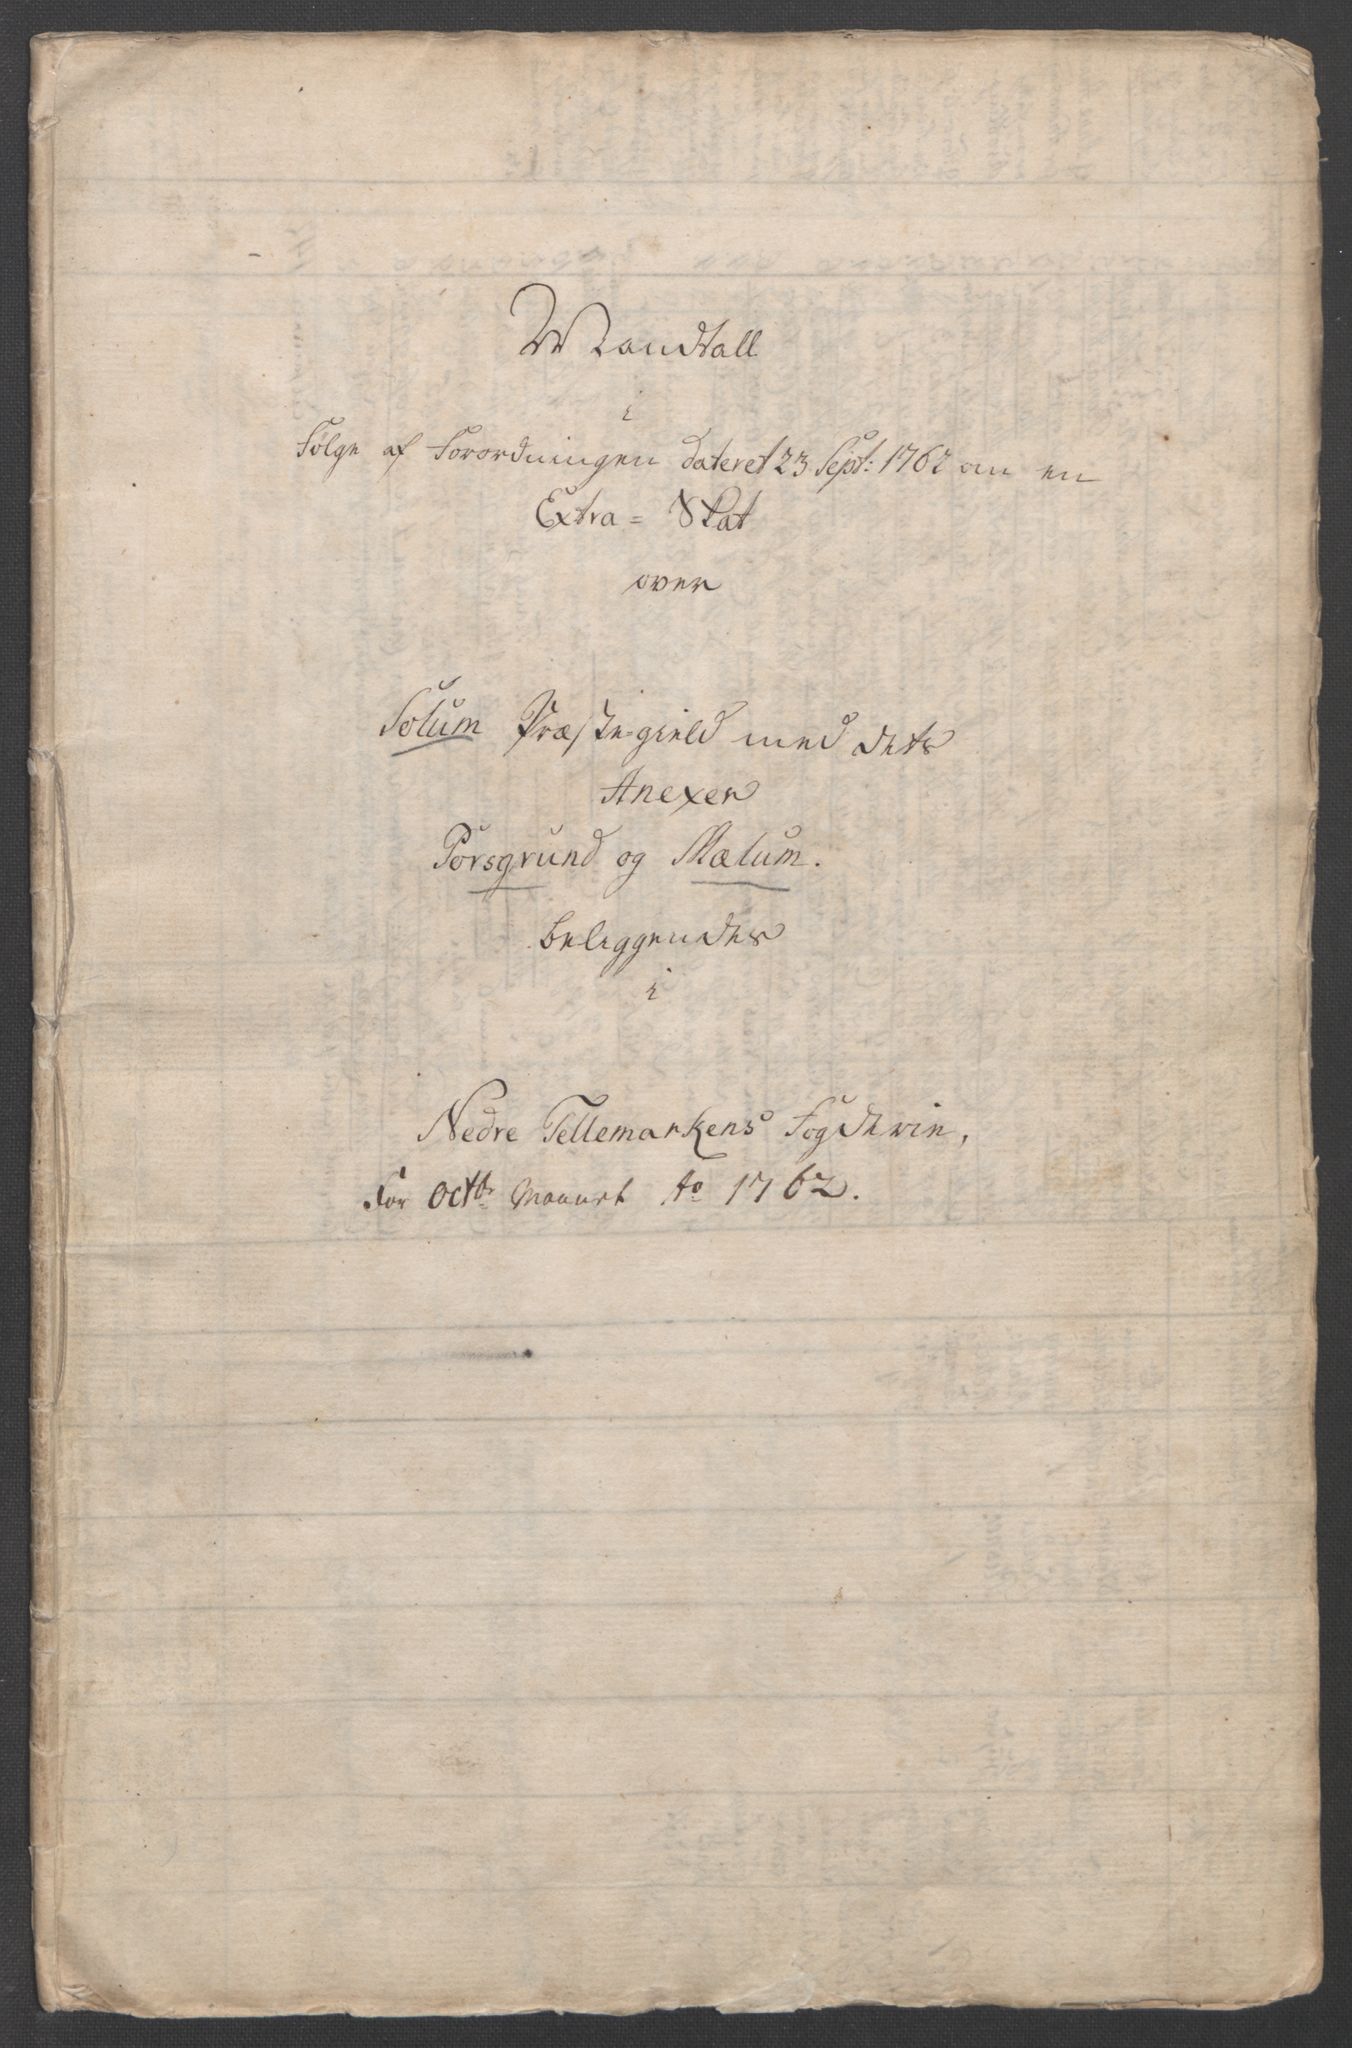 Mandtall
i
Følge af Forordningen dateret 23 Sept: 1762 om en
Extra = Skat
over
Solum Præste-gield med dets
Anexer
Porsgrund og Mælum.
beliggendes
i
Nedre Tellemarkens Fogderie,
For Octbr Maanet Ao 1762.